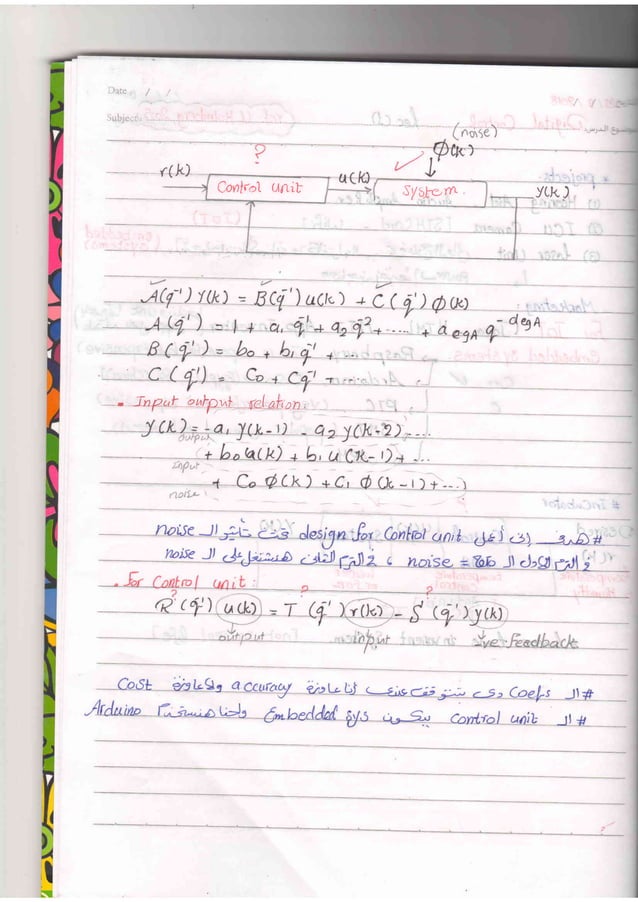 Date / /
Subject:
(noise)
? φ(k)
r(k) Control unit u(k) System. y(k)
A(q⁻¹) y(k) = B(q⁻¹) u(k) + C(q⁻¹) φ(k)
A(q⁻¹) = 1 + a₁ q⁻¹ + a₂ q⁻² + ..... + a degA q^-degA
B(q⁻¹) = b₀ + b₁ q⁻¹ +
C(q⁻¹) = C₀ + C q⁻¹ +
• Input output relation:
y(k) = -a₁ y(k-1) - a₂ y(k-2) ....
output
+ b₀ u(k) + b₁ u(k-1) + ...
input
+ C₀ φ(k) + C₁ φ(k-1) + ...
noise
# هدف إني أعمل design for Control unit تحت تأثير الـ noise
noise = ، الترم التاني هنشتغل على الـ noise
• for Control unit:
? ? ?
R(q⁻¹) u(k) = T(q⁻¹) r(k) - S(q⁻¹) y(k)
output input -ve feedback
# الـ Coefs دي بتتوقف عندي أنا عاوزة accuracy ولا عاوزة Cost
# الـ Control unit بيكون Embedded sys واحنا هنستخدم Arduino